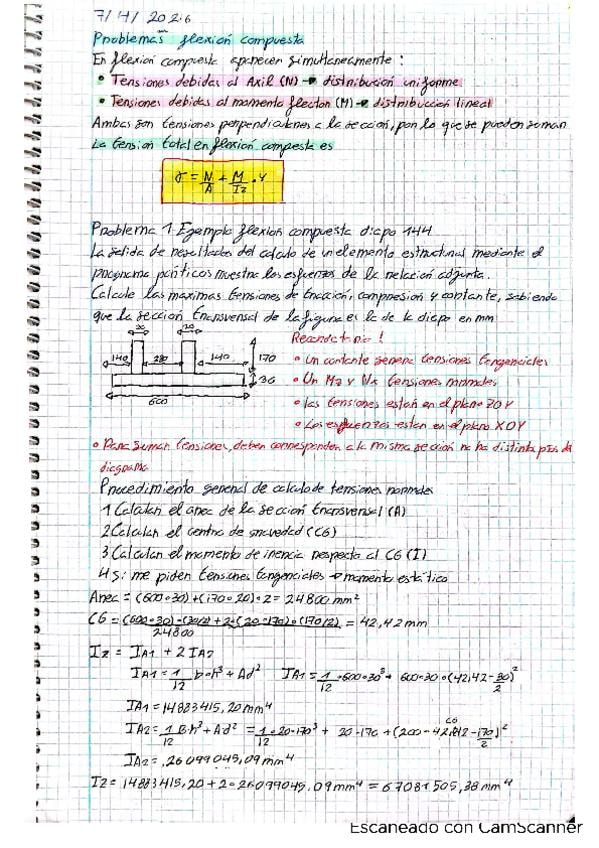 7/4/2026
Problemas flexión compuesta
En flexión compuesta aparecen simultaneamente:
• Tensiones debidas al Axil (N) → distribución uniforme
• Tensiones debidas al momento flector (M) → distribución lineal
Ambas son tensiones perpendiculares a la sección, por lo que se pueden sumar
La tensión total en flexión compuesta es
σ = N/A + M/Iz · y
Problema 1. Ejemplo flexión compuesta diapo 144
La salida de resultados del calculo de un elemento estructural mediante el
programa porticos muestra los esfuerzos de la relación adjunta.
Calcule las máximas tensiones de tracción, compresión y cortante, sabiendo
que la sección transversal de la figura es la de la diapo en mm
20 20
140 280 140 170
30
600
Recordatorio!
• Un cortante genera tensiones tangenciales
• Un Mz y Nx tensiones normales
• Las tensiones están en el plano ZOY
• Los esfuerzos estan en el plano XOY
• Para sumar tensiones, deben corresponder a la misma sección no ha distintas ptos de
diagrama
Procedimiento general de calculo de tensiones normales
1 Calcular el area de la sección transversal (A)
2 Calcular el centro de gravedad (CG)
3 Calcular el momento de inercia respecto al CG (I)
4 Si me piden tensiones tangenciales → momento estático
Area = (600·30)+(170·20)·2 = 24800 mm²
= 42,42 mm
24800
Iz = IA1 + 2IA2
IA1 = 1/12 b·h³ + Ad² IA1 = 1/12 · 600·30³ + 600·30·(42,42 - 30/2)²
IA1 = 14883415,20 mm⁴
IA2 = 1/12 B·h³ + Ad² = 1/12 · 20·170³ + 20·170 + (200 - 42,42 - 170/2)²
IA2 = 26099045,09 mm⁴
Iz = 14883415,20 + 2·26099045,09 mm⁴ = 67081505,38 mm⁴
Escaneado con CamScanner